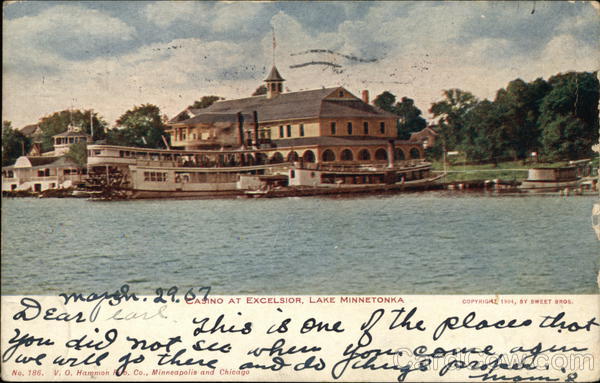 CASINO AT EXCELSIOR, LAKE MINNETONKA
COPYRIGHT 1904, BY SWEET BROS.
march. 29. 07
Dear earl
This is one of the places that
you did not see when you come agin
we will go there and do things proper
mom
No. 186. V. O. Hammon Pub. Co., Minneapolis and Chicago
CardCow.com